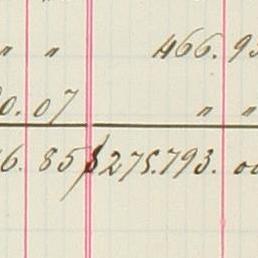 " " 466. 93
0. 07 " "
6. 85 $275.793. 00